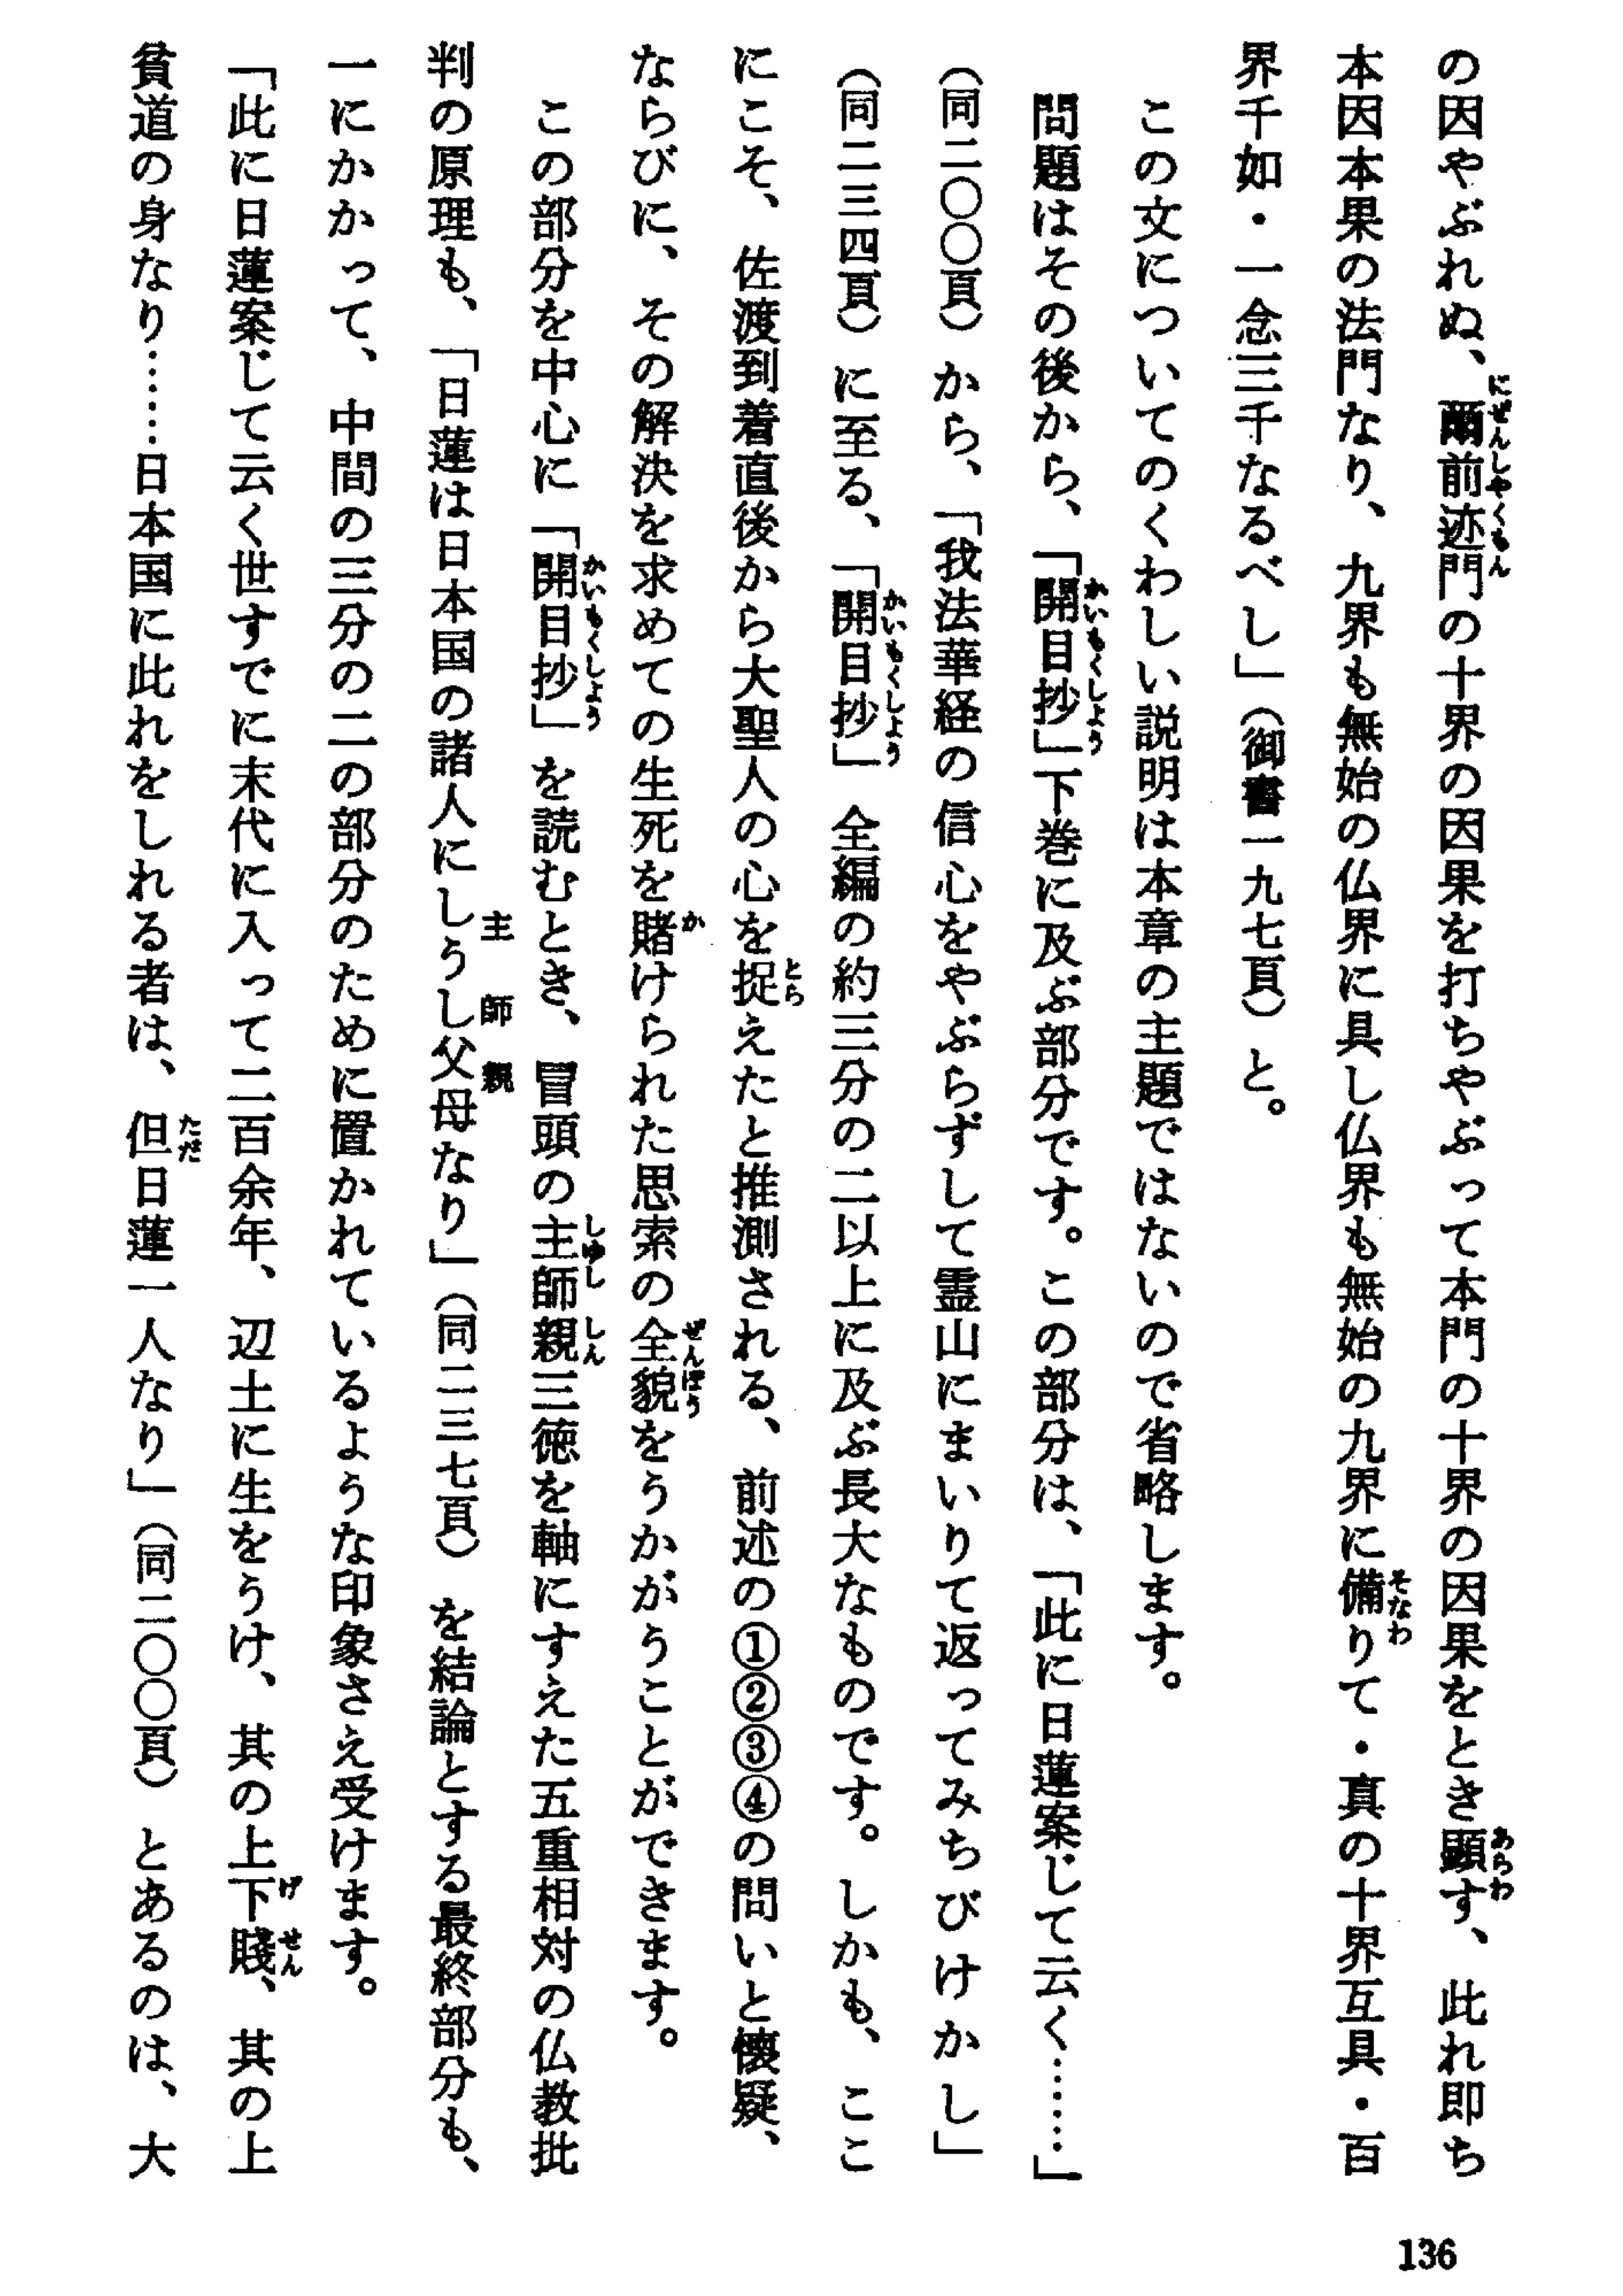 の因やぶれぬ、爾前迹門の十界の因果を打ちやぶって本門の十界の因果をとき顕す、此れ即ち
本因本果の法門なり、九界も無始の仏界に具し仏界も無始の九界に備りて・真の十界互具・百
界千如・一念三千なるべし」（御書一九七頁）と。
この文についてのくわしい説明は本章の主題ではないので省略します。
問題はその後から、「開目抄」下巻に及ぶ部分です。この部分は、「此に日蓮案じて云く……」
（同二〇〇頁）から、「我法華経の信心をやぶらずして霊山にまいりて返ってみちびけかし」
（同二三四頁）に至る、「開目抄」全編の約三分の二以上に及ぶ長大なものです。しかも、ここ
にこそ、佐渡到着直後から大聖人の心を捉えたと推測される、前述の①②③④の問いと懐疑、
ならびに、その解決を求めての生死を賭けられた思索の全貌をうかがうことができます。
この部分を中心に「開目抄」を読むとき、冒頭の主師親三徳を軸にすえた五重相対の仏教批
判の原理も、「日蓮は日本国の諸人にしうし父母なり」（同二三七頁）を結論とする最終部分も、
一にかかって、中間の三分の二の部分のために置かれているような印象さえ受けます。
「此に日蓮案じて云く世すでに末代に入って二百余年、辺土に生をうけ、其の上下賤、其の上
貧道の身なり……日本国に此れをしれる者は、但日蓮一人なり」（同二〇〇頁）とあるのは、大
にぜんしやくもん
あらわ
そなわ
かいもくしよう
かいもくしよう
とら
か
ぜんぼう
かいもくしよう
しゆし
しん
主
師
親
げ
せん
ただ
136